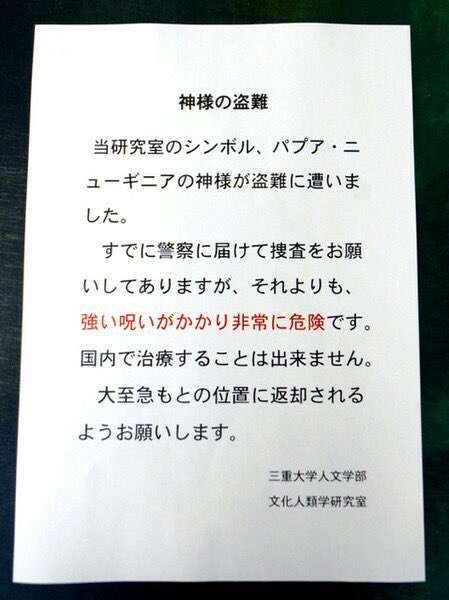 神様の盗難
当研究室のシンボル、パプア・ニ
ューギニアの神様が盗難に遭いま
した。
すでに警察に届けて捜査をお願
いしてありますが、それよりも、
強い呪いがかかり非常に危険です。
国内で治療することは出来ません。
大至急もとの位置に返却される
ようお願いします。
三重大学人文学部
文化人類学研究室